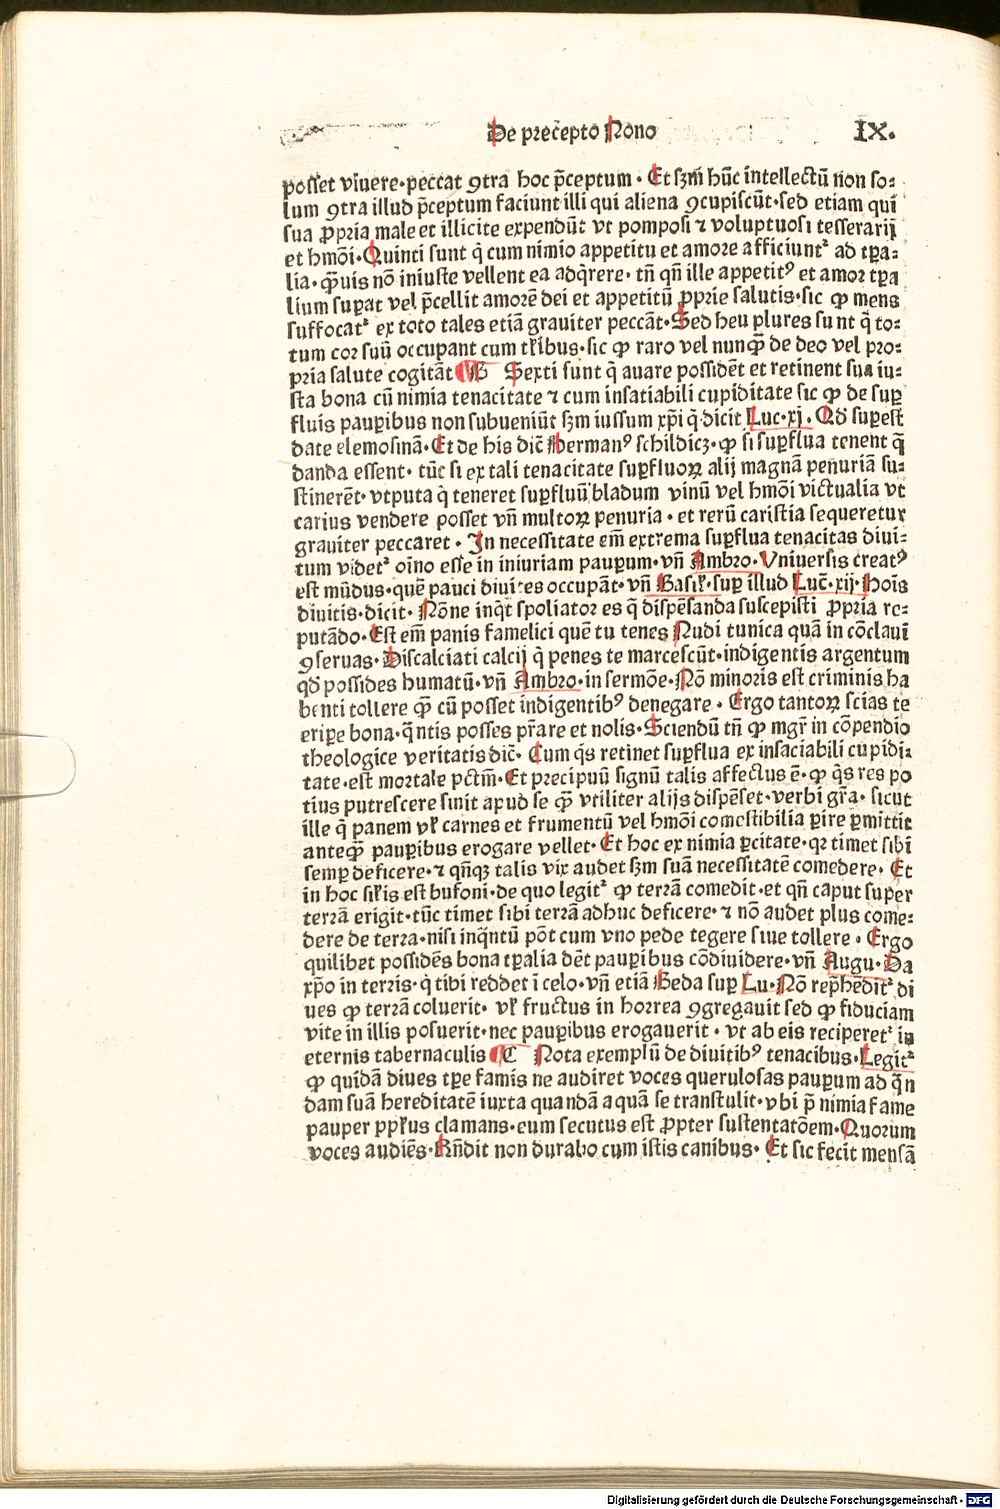 De precepto Nono IX.
posset viuere·peccat ꝯtra hoc p̄ceptum · Et sꝫm hūc intellectū non so⸗
lum ꝯtra illud p̄ceptum faciunt illi qui aliena ꝯcupiscūt·sed etiam qui
sua ꝓpria male et illicite expendūt vt pomposi ⁊ voluptuosi tesserarij
et hmōi·Quinti sunt q̇ cum nimio appetitu et amore afficiuntᷣ ad tꝑa⸗
lia·qͣuis nō iniuste vellent ea adq̇rere· tn̄ qn̄ ille appetitꝰ et amor tꝑa
lium suꝑat vel p̄cellit amorē dei et appetitū ꝓprie salutis·sic ꝙ mens
suffocatᷣ ex toto tales etiā grauiter peccāt·Sed heu plures sunt q̇ to⸗
tum cor suū occupant cum tꝛībus·sic ꝙ raro vel nunqͣ de deo vel pro⸗
pria salute cogitāt B Sexti sunt q̇ auare possidēt et retinent sua iu⸗
sta bona cū nimia tenacitate ⁊ cum insatiabili cupiditate sic ꝙ de suꝑ
fluis pauꝑibus non subueniūt sꝫm iussum xp̄i q̇ dicit Luc·xj. Qd̄ suꝑest
date elemosinā·Et de his dic̄ Hermanꝰ schildicz·ꝙ si suꝑflua tenent q̄
danda essent· tūc si ex tali tenacitate suꝑfluoꝝ alij magnā penuriā su⸗
stinerēt·vtputa q̇ teneret suꝑfluū bladum vinū vel hmōi victualia vt
carius vendere posset vn̄ multoꝝ penuria · et rerū caristia sequeretur
grauiter peccaret · In necessitate em̄ extrema suꝑflua tenacitas diui⸗
tum videtᷣ oīno esse in iniuriam pauꝑum·vn̄ Ambro·Vniuersis creatꝰ
est mūdus·quē pauci diuites occupāt·vn̄ Basiƚ·suꝑ illud Luc̄·xij·Hoīs
diuitis·dicit· Nōne inq̇t spoliator es q̄ dispēsanda suscepisti ꝓpria re⸗
putādo·Est em̄ panis famelici quē tu tenes Nudi tunica quā in cōclaui
ꝯseruas·Discalciati calcij q̇ penes te marcescūt·indigentis argentum
qd̄ possides humatū·vn̄ Ambro·in sermōe·Nō minoris est criminis ha
benti tollere qͣ cū posset indigentibꝰ denegare · Ergo tantoꝝ scias te
eriꝑe bona·q̄ntis posses pr̄are et nolis·Sciendū tn̄ ꝙ mgr̄ in cōpendio
theologice veritatis dic̄· Cum q̇s retinet suꝑflua ex insaciabili cupidi⸗
tate·est mortale pctm̄·Et precipuū signū talis affectus ē·ꝙ q̇s res po
tius putrescere sinit apud se qͣ vtiliter alijs dispēset·verbi gr̄a· sicut
ille q̇ panem vƚ carnes et frumentū vel hmōi comestibilia ꝑire ꝑmittit
anteqͣ pauꝑibus erogare vellet·Et hoc ex nimia ꝑcitate·qꝛ timet sibi
semꝑ deficere·⁊ qn̄qꝫ talis vix audet sꝫm suā necessitatē comedere· Et
in hoc siƚis est bufoni·de quo legitᷣ ꝙ terrā comedit·et qn̄ caput super
terrā erigit·tūc timet sibi terrā adhuc deficere·⁊ nō audet plus come⸗
dere de terra·nisi inq̄ntū pōt cum vno pede tegere siue tollere · Ergo
quilibet possidēs bona tꝑalia dēt pauꝑibus cōdiuidere·vn̄ Augu·Da
xp̄o in terris·q̇ tibi reddet ī celo·vn̄ etiā Beda suꝑ Lu·Nō rep̄hēditᷣ di
ues ꝙ terrā coluerit· vƚ fructus in horrea ꝯgregauit sed ꝙ fiduciam
vite in illis posuerit·nec pauꝑibus erogauerit · vt ab eis reciperetᷣ in
eternis tabernaculis C Nota exemplū de diuitibꝰ tenacibus·Legitᷣ
ꝙ quidā diues tꝑe famis ne audiret voces querulosas pauꝑum ad q̄n
dam suā hereditatē iuxta quandā aquā se transtulit·vbi p̄ nimia fame
pauper ppƚus clamans·eum secutus est ꝓpter sustentatōem·Quorum
voces audiēs·Rn̄dit non durabo cum istis canibus· Et sic fecit mensā
Digitalisierung gefördert durch die Deutsche Forschungsgemeinschaft - DFG